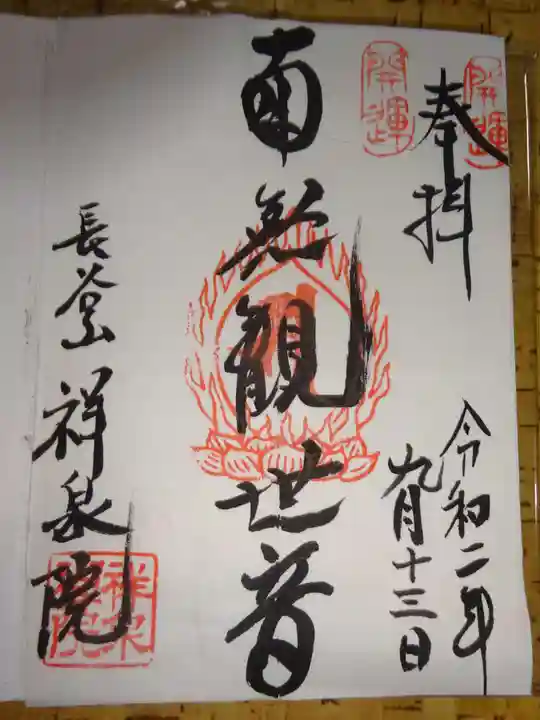 奉拝
開運
開運
令和二年
九月十三日
南無観世音
長谷山祥泉院
祥泉院